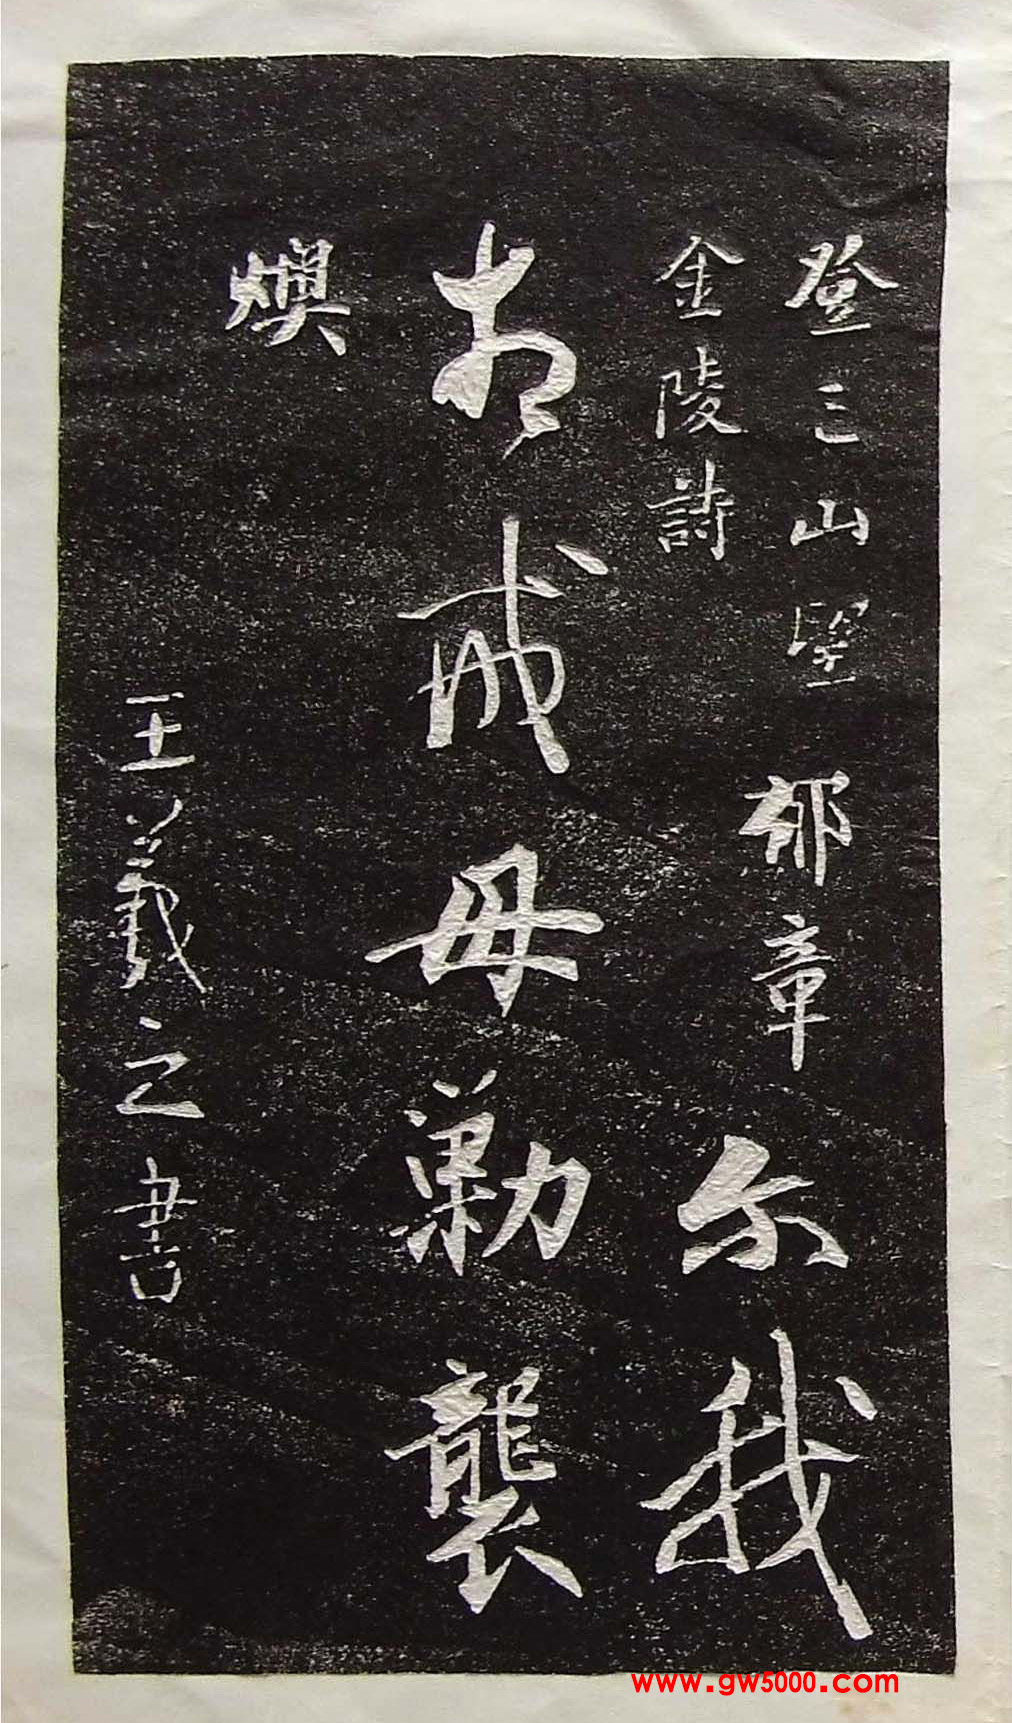 登三山望
金陵詩
章尔我
相戒毋勦襲
燠
王羲之書
www.gw5000.com